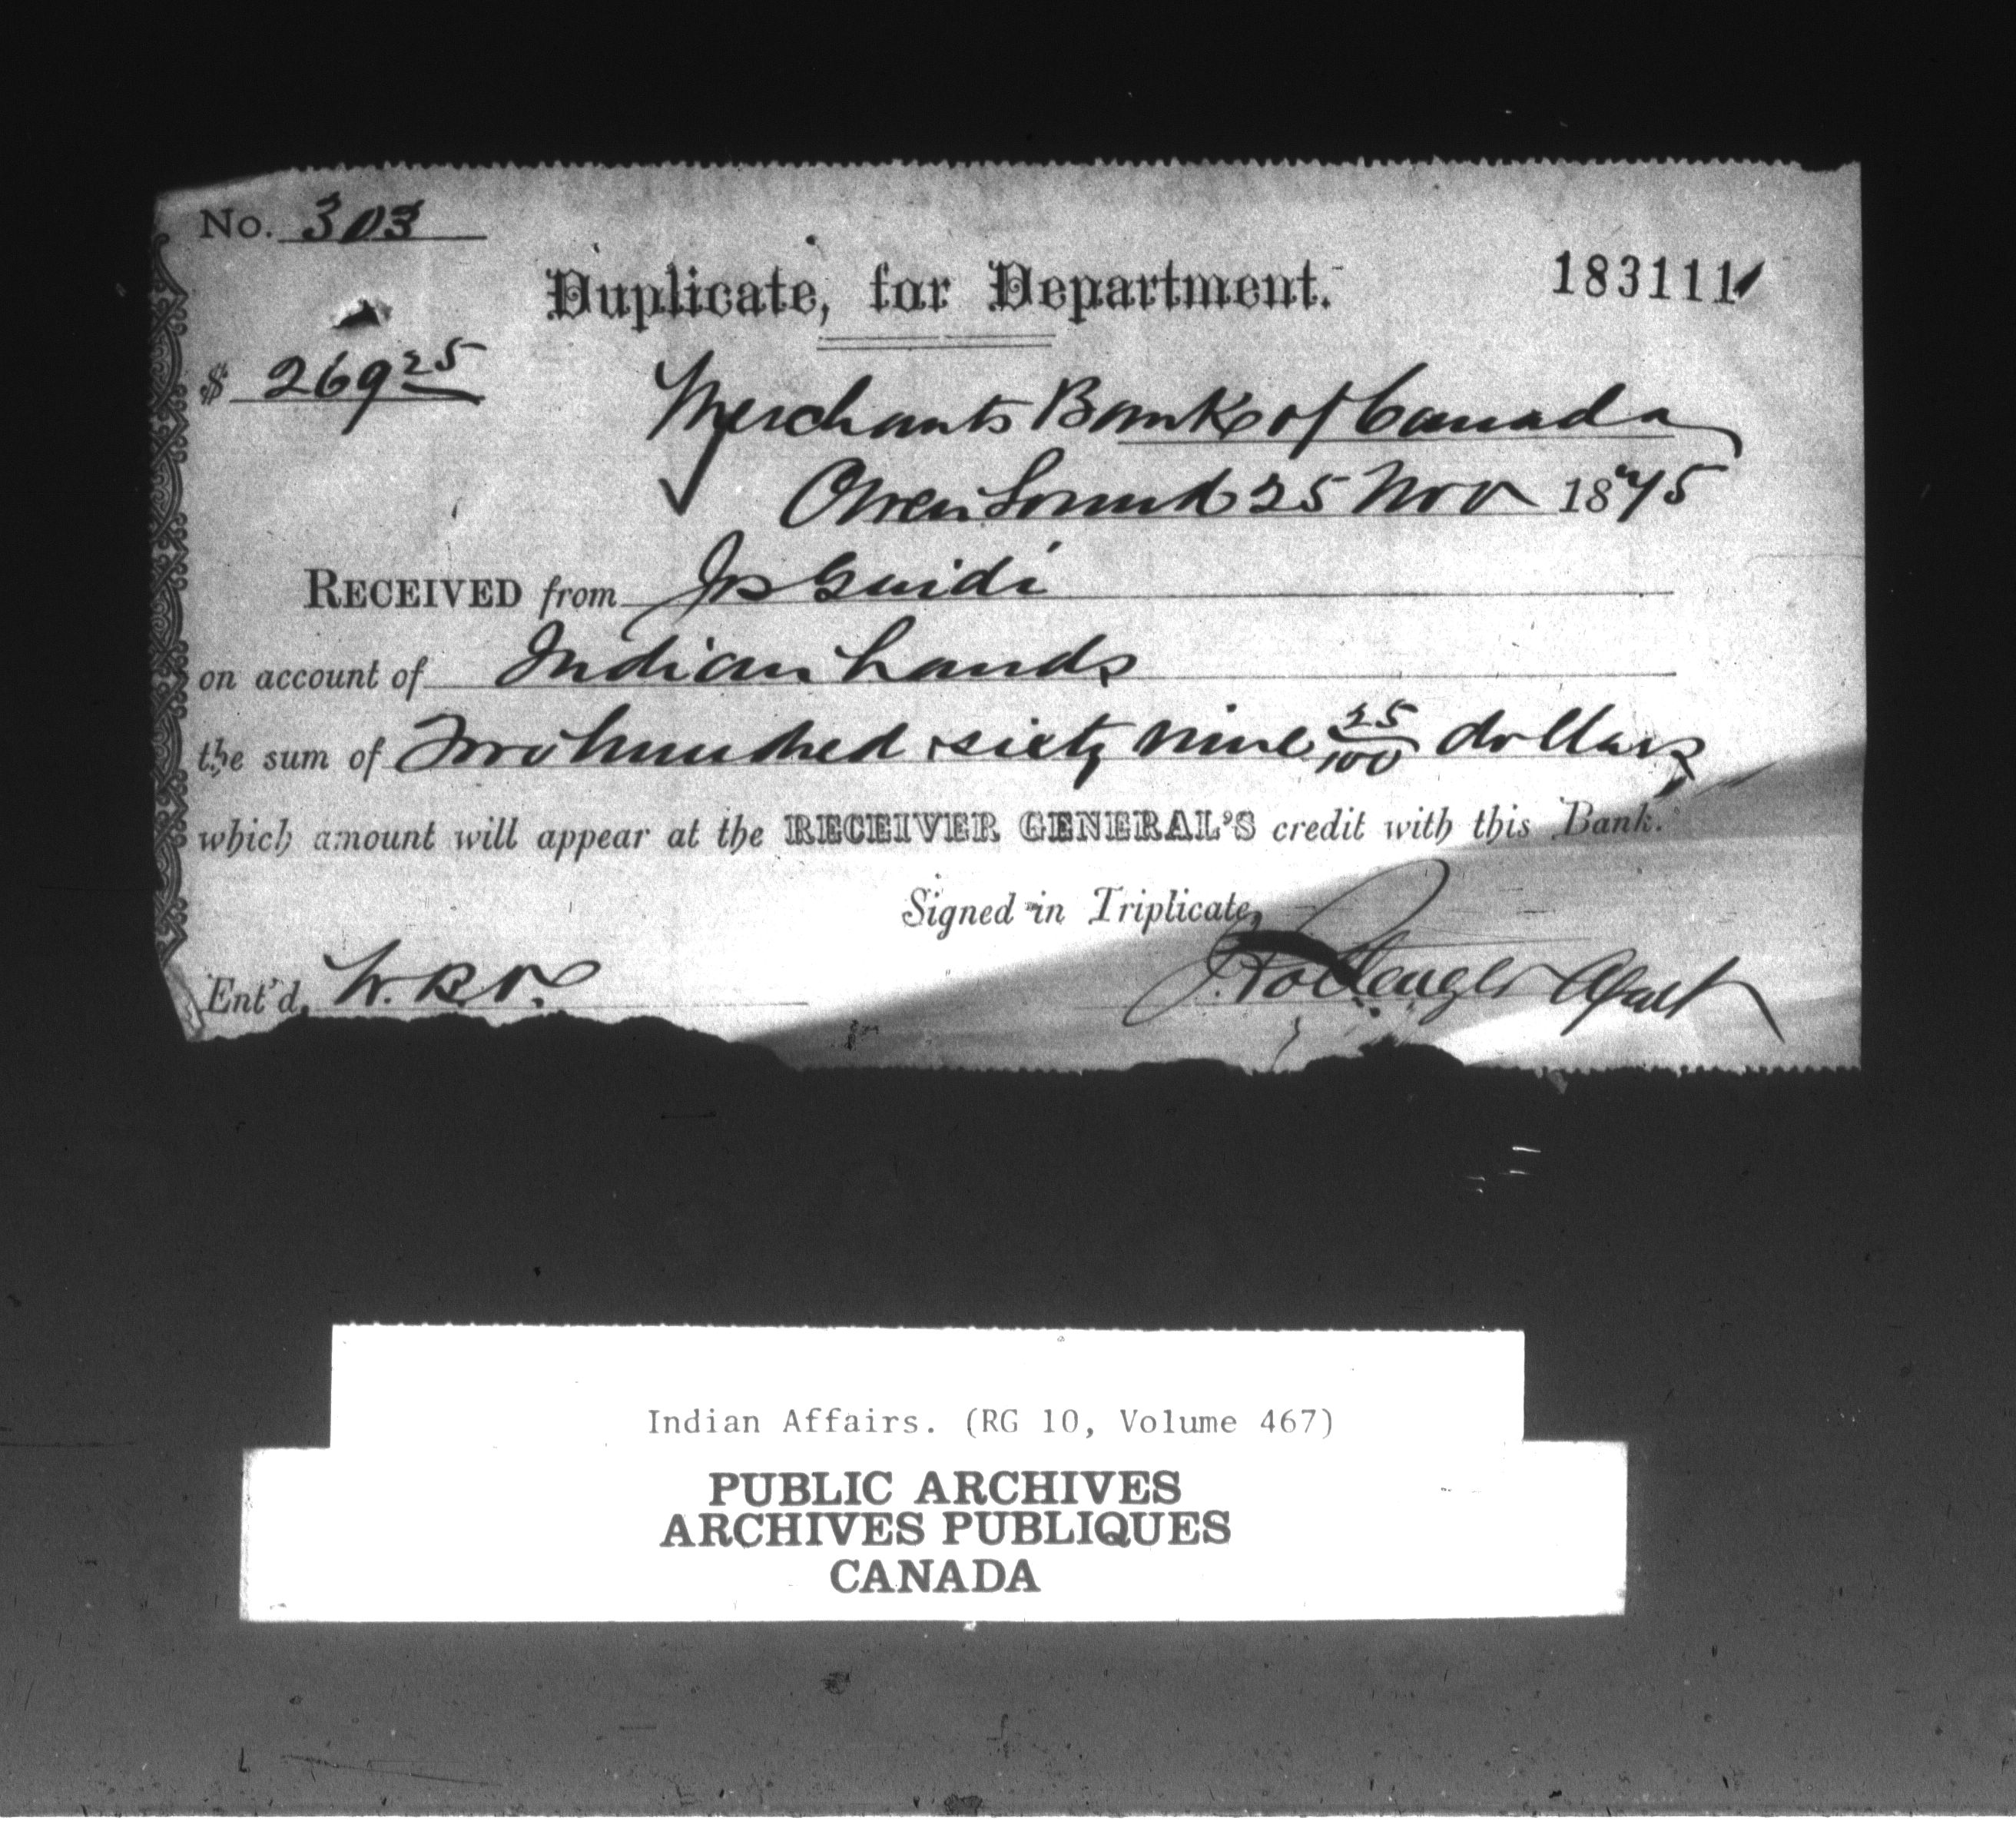 No. 303
Duplicate, for Department.
183111
$ 269 25
Merchants Bank of Canada
Owen Sound 25 Nov 1875
RECEIVED from Jos Guidi
on account of Indian Lands
the sum of Two hundred sixty nine 25/100 dollars
which amount will appear at the RECEIVER GENERAL'S credit with this Bank.
Signed in Triplicate,
Ent'd, W.R.V. Agent
Indian Affairs. (RG 10, Volume 467)
PUBLIC ARCHIVES
ARCHIVES PUBLIQUES
CANADA